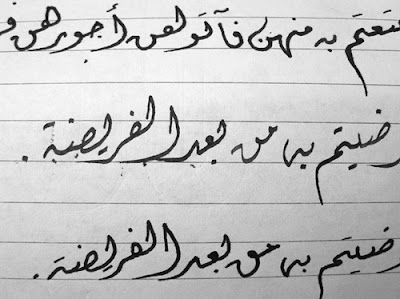 متعتم به منهن فآتوهن أجورهن ف
رضيتم به من بعد الفريضة .
رضيتم به من بعد الفريضة .